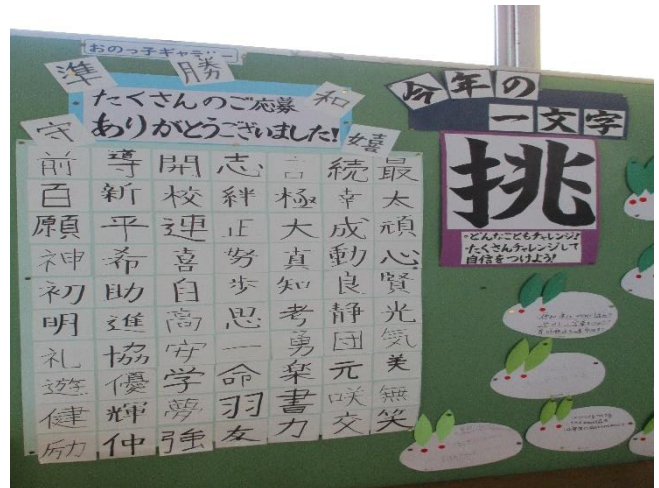 おのっ子ギャラリー
準
勝
和
守
嬉
たくさんのご応募
ありがとうございました!
前 導 開 志 言 続 最
百 新 校 絆 極 幸 太
願 平 運 正 大 成 頑
神 希 喜 努 真 動 心
初 助 自 歩 知 良 賢
明 進 高 思 考 静 光
礼 協 安 一 勇 団 気
遊 優 学 命 楽 元 美
健 輝 夢 羽 書 咲 無
励 仲 強 友 力 交 笑
今年の
一文字
挑
どんなこともチャレンジ♪
たくさんチャレンジして
自信をつけよう!